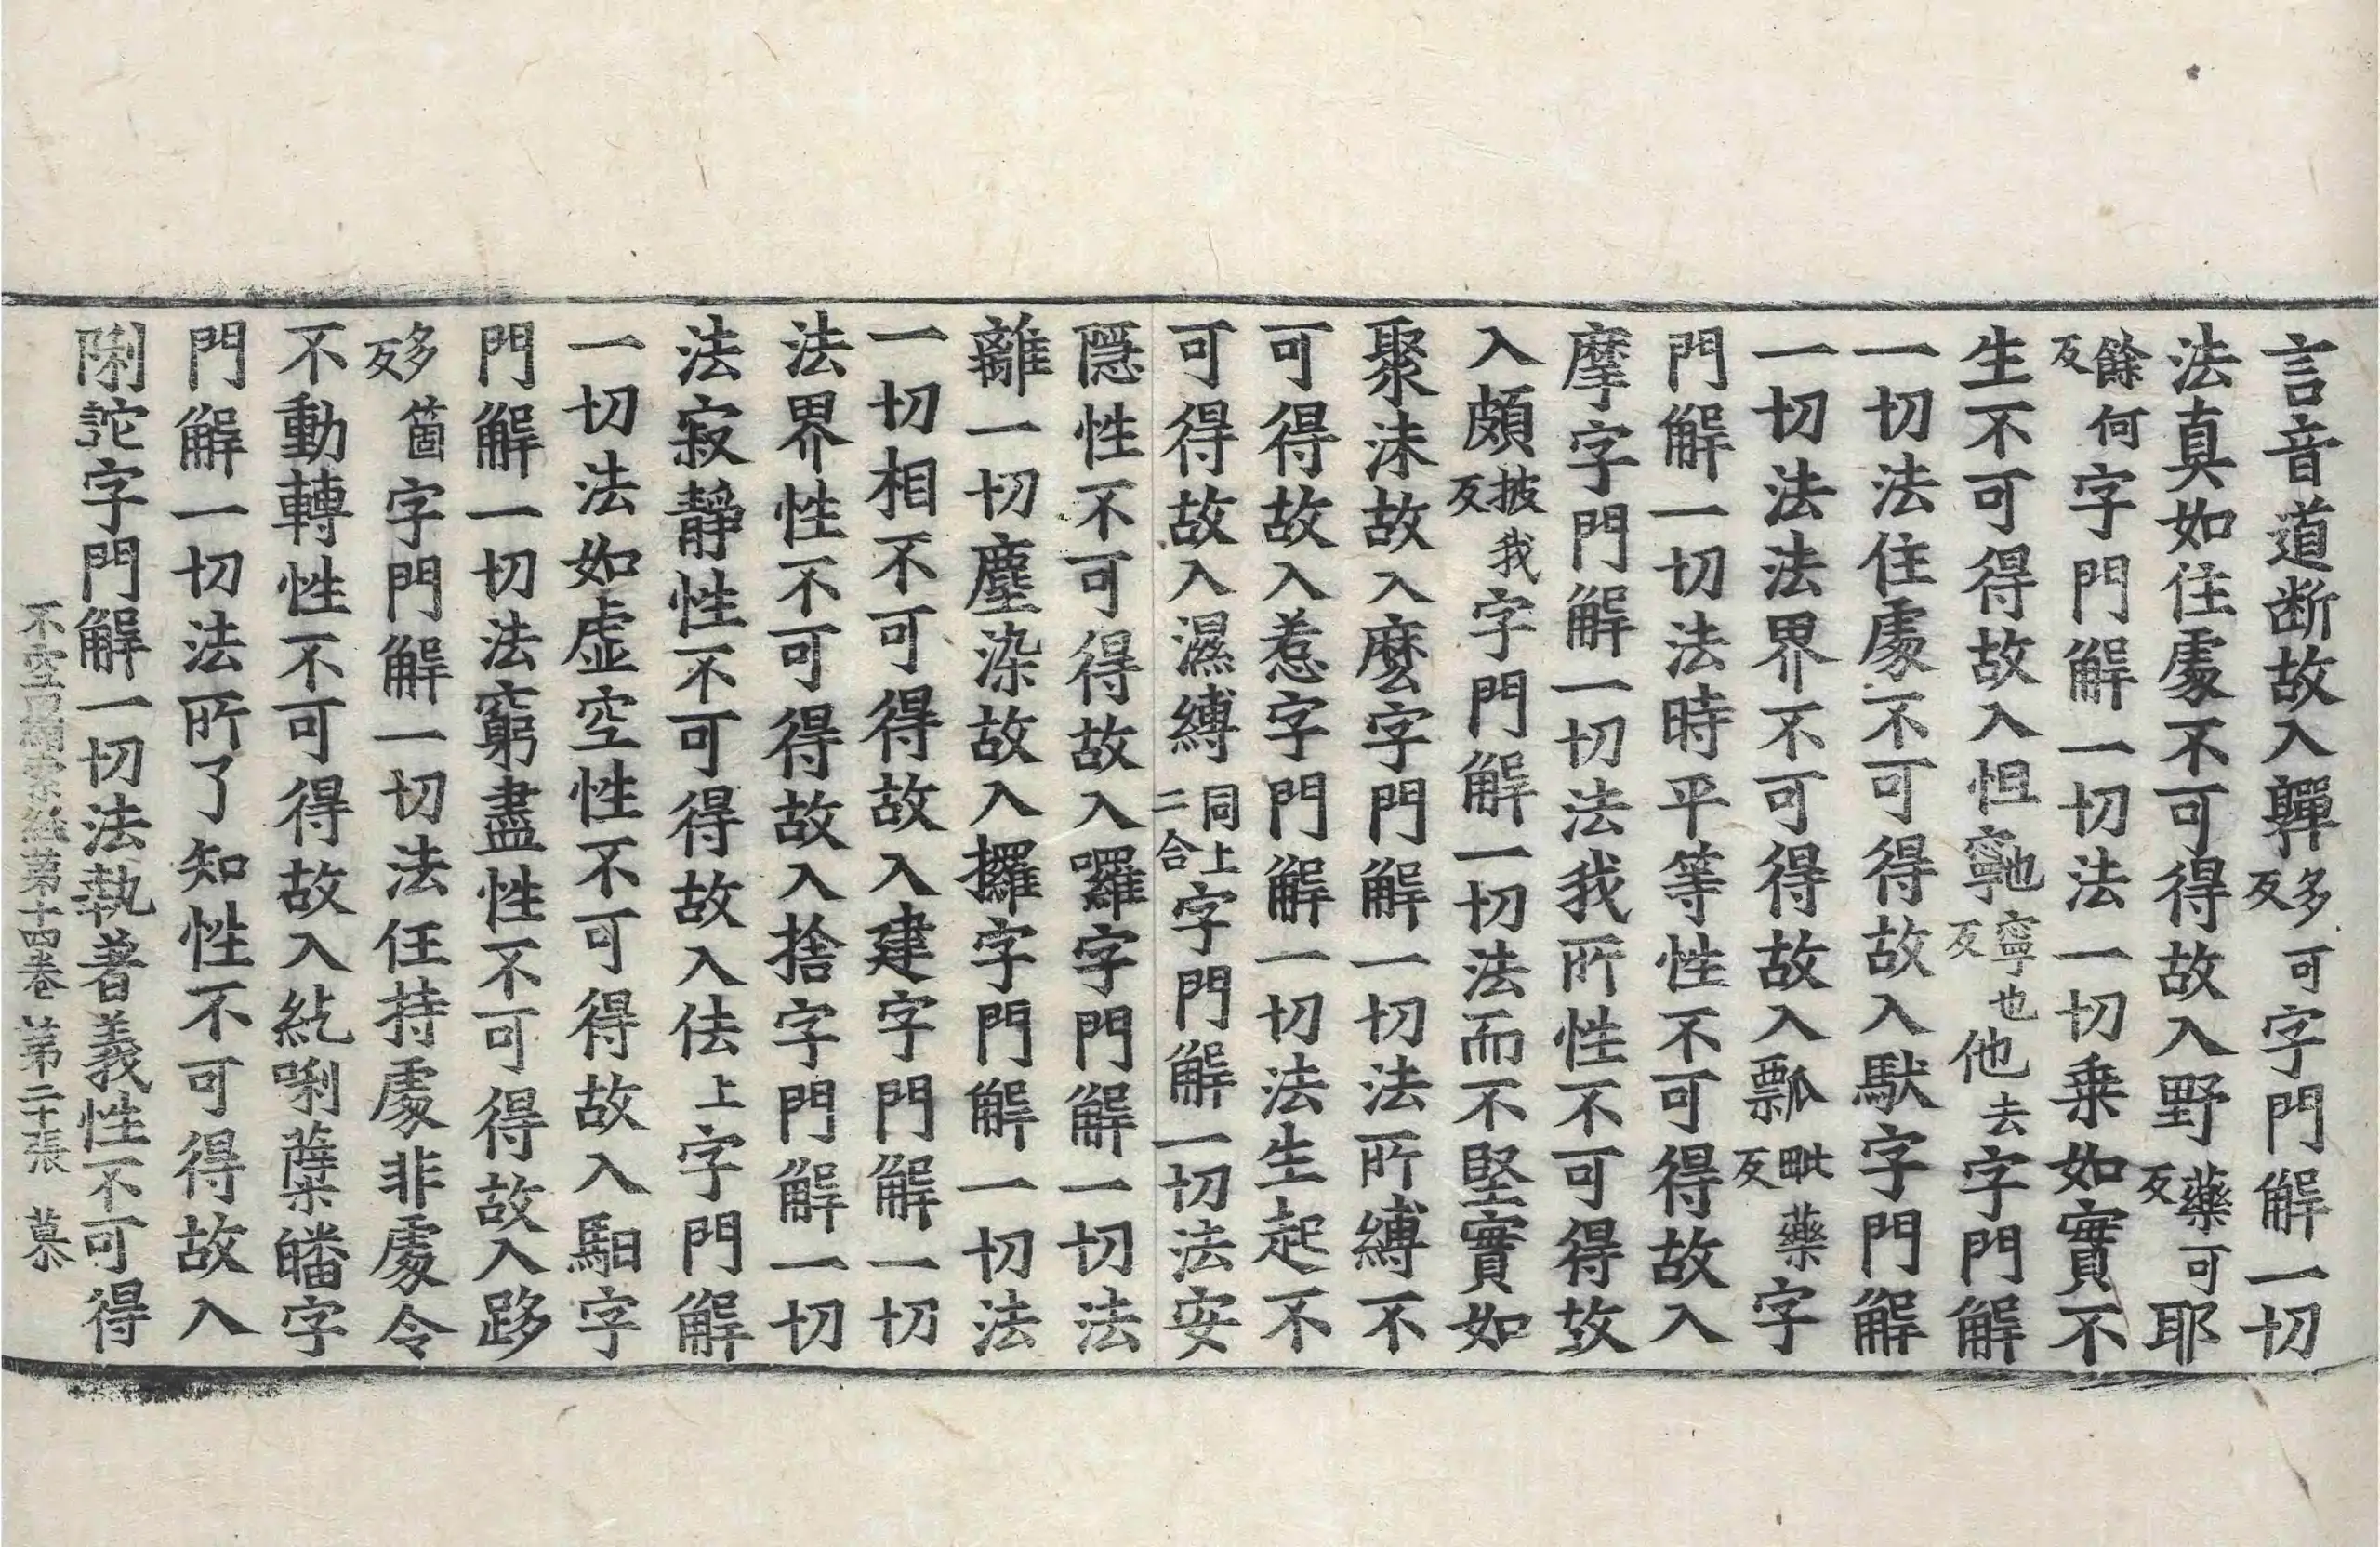 言音道断故入驒多可反字門解一切
法真如住處不可得故入野藥可反耶
餘何反字門解一切法一切乗如實不
生不可得故入怛寧也寧也反他去字門解
一切法住處不可得故入馱字門解
一切法法界不可得故入瓢毗藥反字
門解一切法時平等性不可得故入
摩字門解一切法我所性不可得故
入頗披我反字門解一切法而不堅實如
聚沫故入麼字門解一切法所縛不
可得故入惹字門解一切法生起不
可得故入濕縛同上二合字門解一切法安
隱性不可得故入囉字門解一切法
離一切塵染故入攞字門解一切法
一切相不可得故入建字門解一切
法界性不可得故入捨字門解一切
法寂靜性不可得故入佉上字門解
一切法如虛空性不可得故入馹字
門解一切法窮盡性不可得故入跢
多箇反字門解一切法任持處非處令
不動轉性不可得故入紇唎薩皤字
門解一切法所了知性不可得故入
唎詑字門解一切法執著義性不可得
不空羂索經第十四卷 第二十張 慕